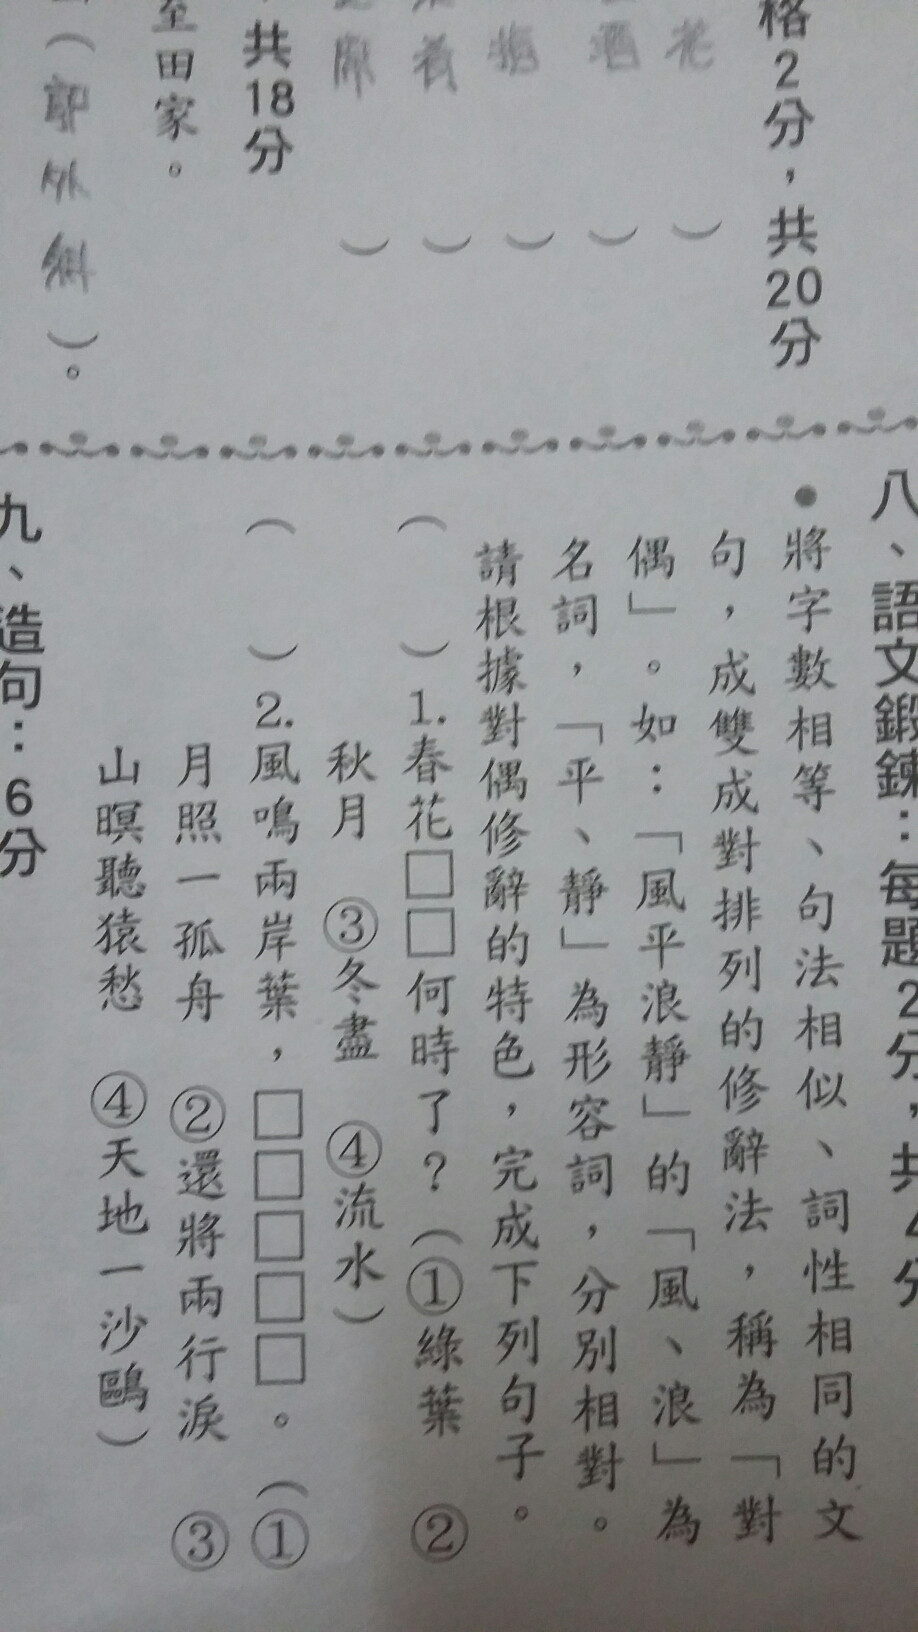 格2分，共20分
老
酒
席
共18分
至田家。
（郭外斜）。
八、語文鍛鍊：每題2分，共4分
●將字數相等、句法相似、詞性相同的文
句，成雙成對排列的修辭法，稱為「對
偶」。如：「風平浪靜」的「風、浪」為
名詞，「平、靜」為形容詞，分別相對。
請根據對偶修辭的特色，完成下列句子。
（　）1.春花□□何時了？（①綠葉　②
秋月　③冬盡　④流水）
（　）2.風鳴兩岸葉，□□□□□。（①
月照一孤舟　②還將兩行淚　③
山暝聽猿愁　④天地一沙鷗）
九、造句：6分